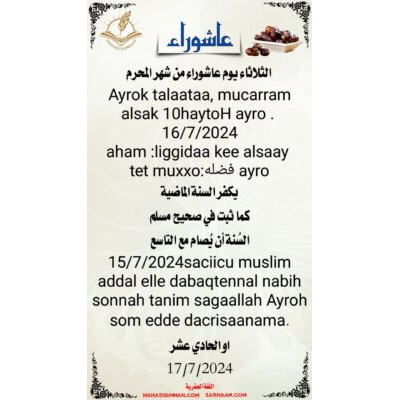 عاشوراء
الثلاثاء يوم عاشوراء من شهر المحرم
Ayrok talaataa, mucarram
alsak 10haytoH ayro .
16/7/2024
aham :liggidaa kee alsaay
tet muxxo:فضله ayro
يكفر السنة الماضية
كما ثبت في صحيح مسلم
السُنة أن يُصام مع التاسع
15/7/2024saciicu muslim
addal elle dabaqtennal nabih
sonnah tanim sagaallah Ayroh
som edde dacrisaanama.
او الحادي عشر
17/7/2024
اللغة العفرية
MAHADSUNNAH.COM SARHAAN.COM